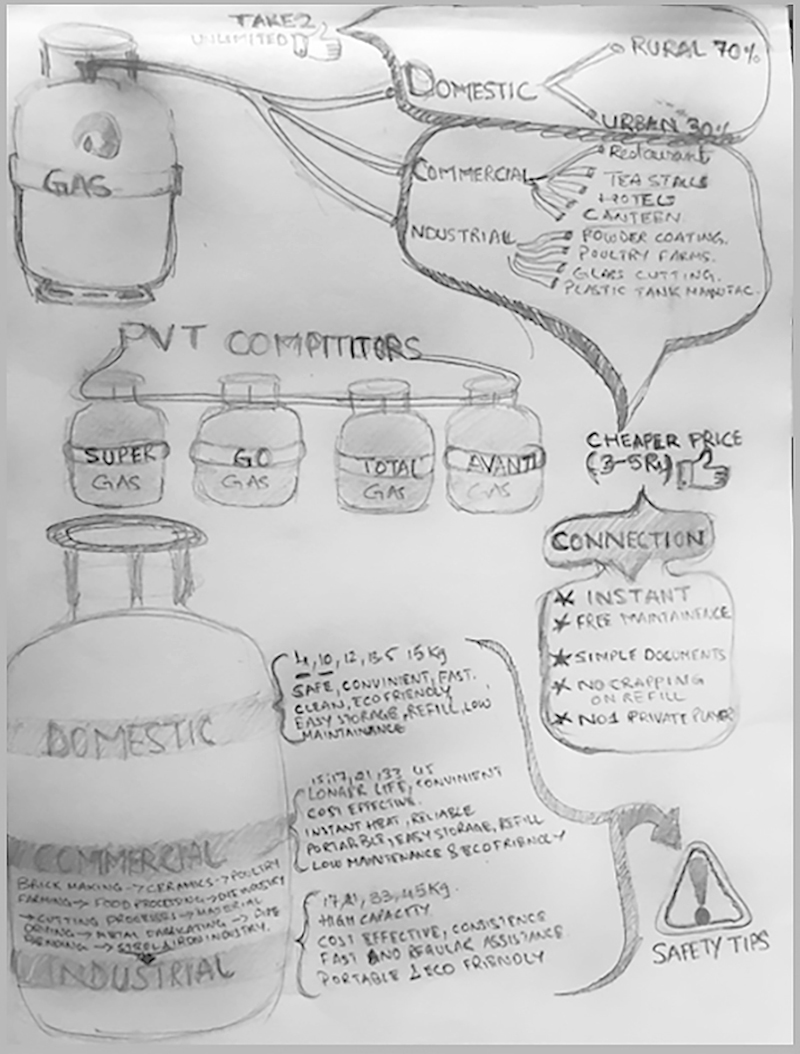 TAKE 2
UNLIMITED
DOMESTIC
RURAL 70%
URBAN 30%
GAS
COMMERCIAL
Restaurant
TEA STALLS
HOTELS
CANTEEN
INDUSTRIAL
POWDER COATING.
POULTRY FARMS.
GLASS CUTTING.
PLASTIC TANK MANUFAC.
PVT COMPITITORS
SUPER
GAS
GO
GAS
TOTAL
GAS
AVANTI
GAS
CHEAPER PRICE
(3-5R)
CONNECTION
INSTANT
FREE MAINTAINENCE
SIMPLE DOCUMENTS
NO CRAPPING
ON REFILL
NO1 PRIVATE PLAYER
DOMESTIC
4, 10, 12, 13.5 15 Kg
SAFE, CONVINIENT, FAST.
CLEAN, ECOFRIENDLY
EASY STORAGE, REFILL, LOW
MAINTAINANCE
COMMERCIAL
15, 17, 21, 33 45
LONGER LIFE, CONVINIENT
COST EFFECTIVE.
INSTANT HEAT, RELIABLE
PORTARBLE, EASY STORAGE, REFILL
LOW MAINTENANCE & ECOFRIENDLY
BRICK MAKING -> CERAMICS -> POULTRY
FARMING -> FOOD PROCESSING -> INDUSTRY
-> CUTTING PROCESSES -> MATERIAL
DRYING -> METAL FABRICATING -> PIPE
BENDING -> STEEL & IRON INDUSTRY.
INDUSTRIAL
17, 21, 33, 45 Kg.
HIGH CAPACITY
COST EFFECTIVE, CONSISTENCE
FAST AND REGULAR ASSISTANCE
PORTABLE & ECO FRIENDLY
SAFETY TIPS